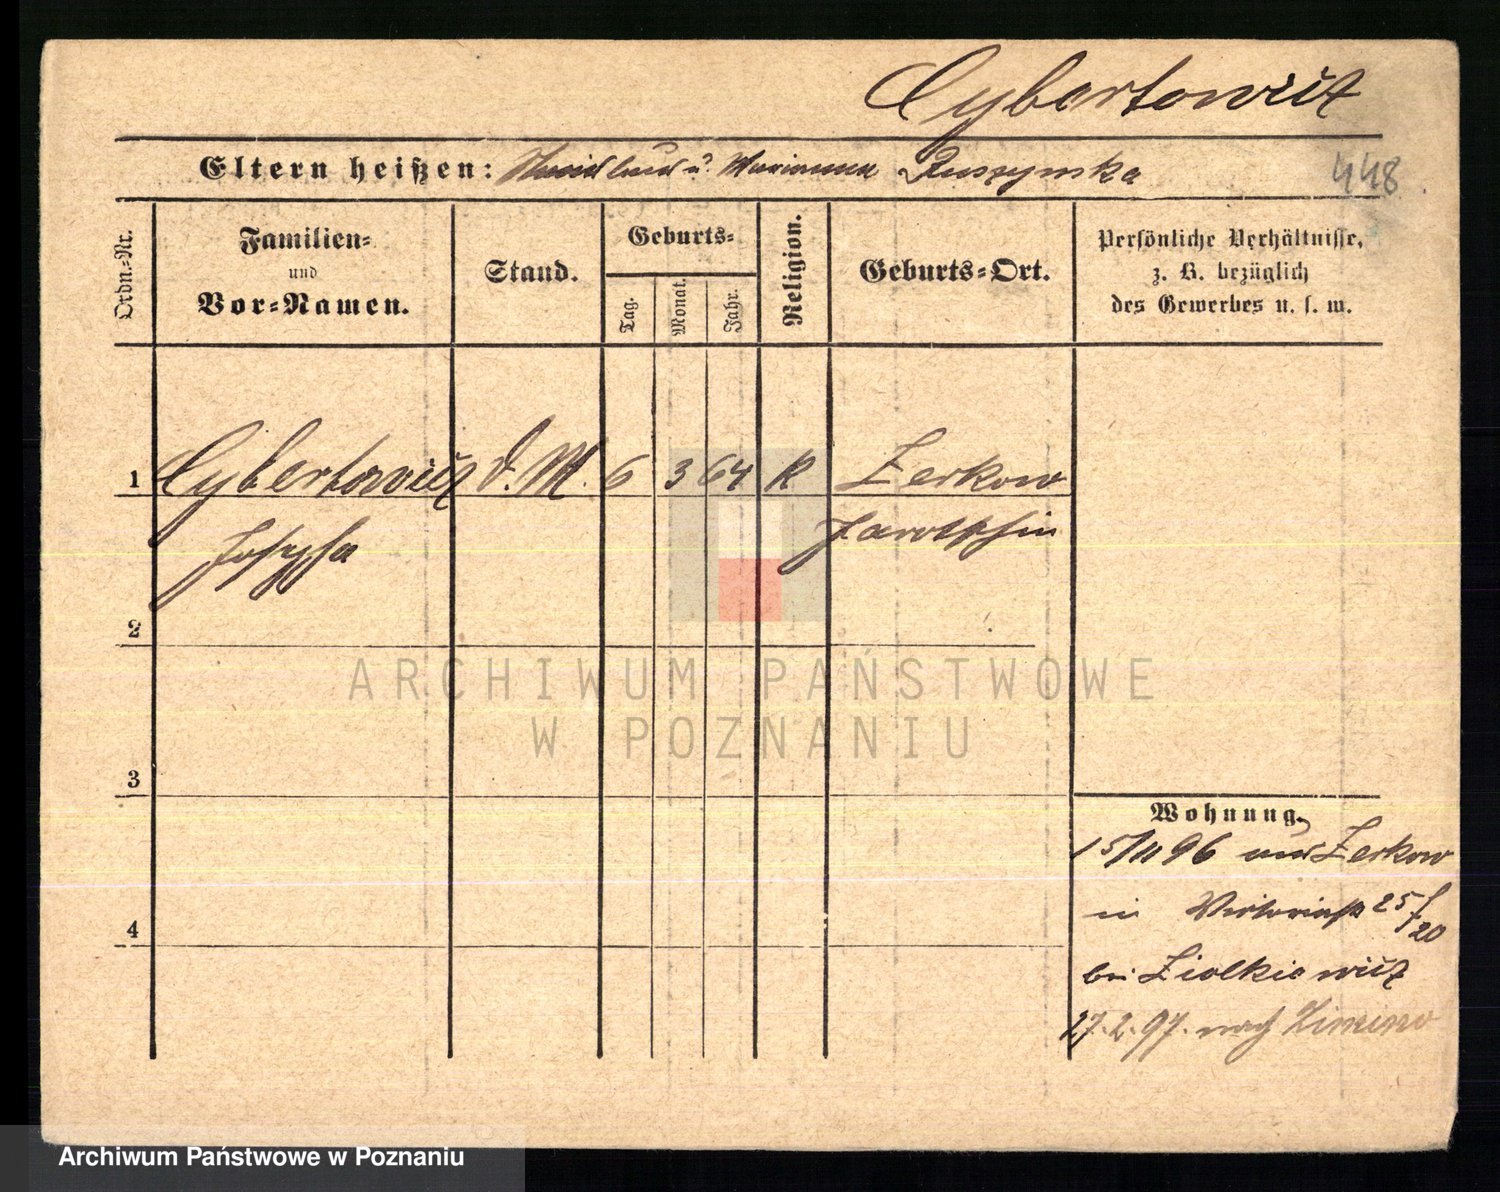 Cybertowicz
Eltern heißen: u. Marianna Ruszynska
448
Ordn.-Nr.
Familien-
und
Vor-Namen.
Stand.
Geburts-
Tag.
Monat.
Jahr.
Religion.
Geburts-Ort.
Persönliche Verhältnisse,
z. B. bezüglich
des Gewerbes u. s. w.
1 Cybertowicz d. M. 6 3 64 K Zerkow
Josepha Jarotschin
2
3
4
Wohnung.
15/11 96 aus Zerkow
in Victoriastr 25/20
bei Ziolkiewicz
27.2.97. nach
ARCHIWUM PAŃSTWOWE
W POZNANIU
Archiwum Państwowe w Poznaniu